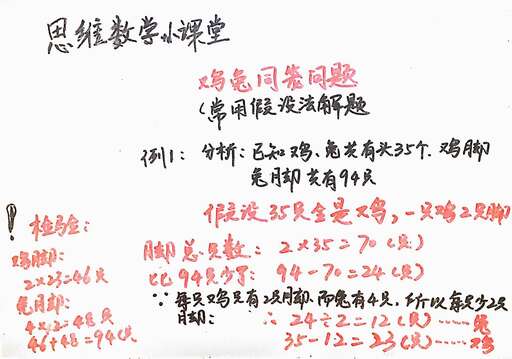 思维数学小课堂
鸡兔同笼问题
(常用假设法解题
例1: 分析:已知鸡、兔共有头35个.鸡脚
兔脚共有94只
假设35只全是鸡,一只鸡2只脚
脚总只数: 2×35=70(只)
比94只少了: 94-70=24(只)
∵每只鸡只有2只脚.而兔有4只,所以每只少2只
脚: ∴ 24÷2=12(只)……兔
35-12=23(只)……鸡
! 检验:
鸡脚:
2×23=46只
兔脚:
4×12=48只
46+48=94(只)